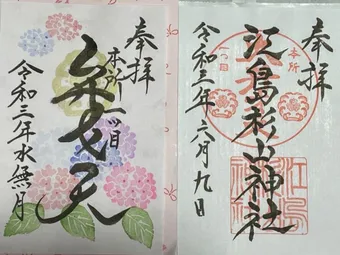 奉拝
本所一ツ目
弁才天
令和三年水無月
奉拝
本所
一つ目
江島杉山神社
令和三年六月九日